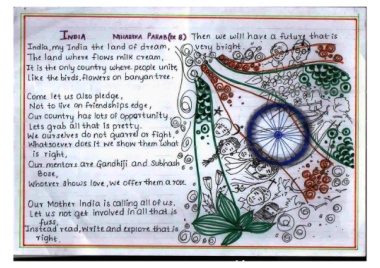 India
Mihabiba Parab (IX B)
India, my India the land of dream,
The land where flows milk cream,
It is the only country where people unite,
like the birds, flowers on banyan tree.
Come let us also pledge,
Not to live on friendships edge,
Our country has lots of opportunity
Lets grab all that is pretty.
We ourselves do not quarrel or fight,
Whatsoever does it we show them what
is right,
Our mentors are Gandhiji and Subhash
Bose,
Whoever shows love, we offer them a rose.
Our Mother India is calling all of us.
Let us not get involved in all that is
fuss.
Instead read, write and explore that is
right.
Then we will have a future that is
very bright.